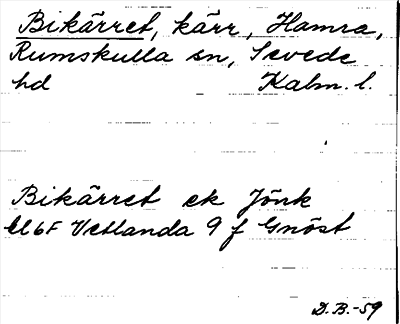 Bikärret, kärr, Hamra,
Rumskulla sn, Sevede
hd Kalm. l.
Bikärret ek Jönk
El6F Vetlanda 9 f Gnöst
D.B.-59